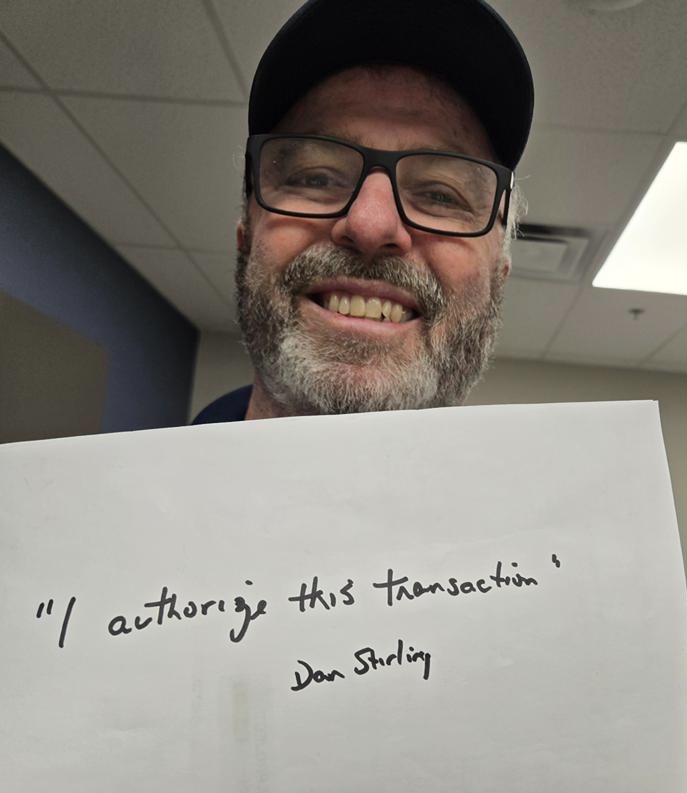 "I authorize this transaction"
Dan Stirling